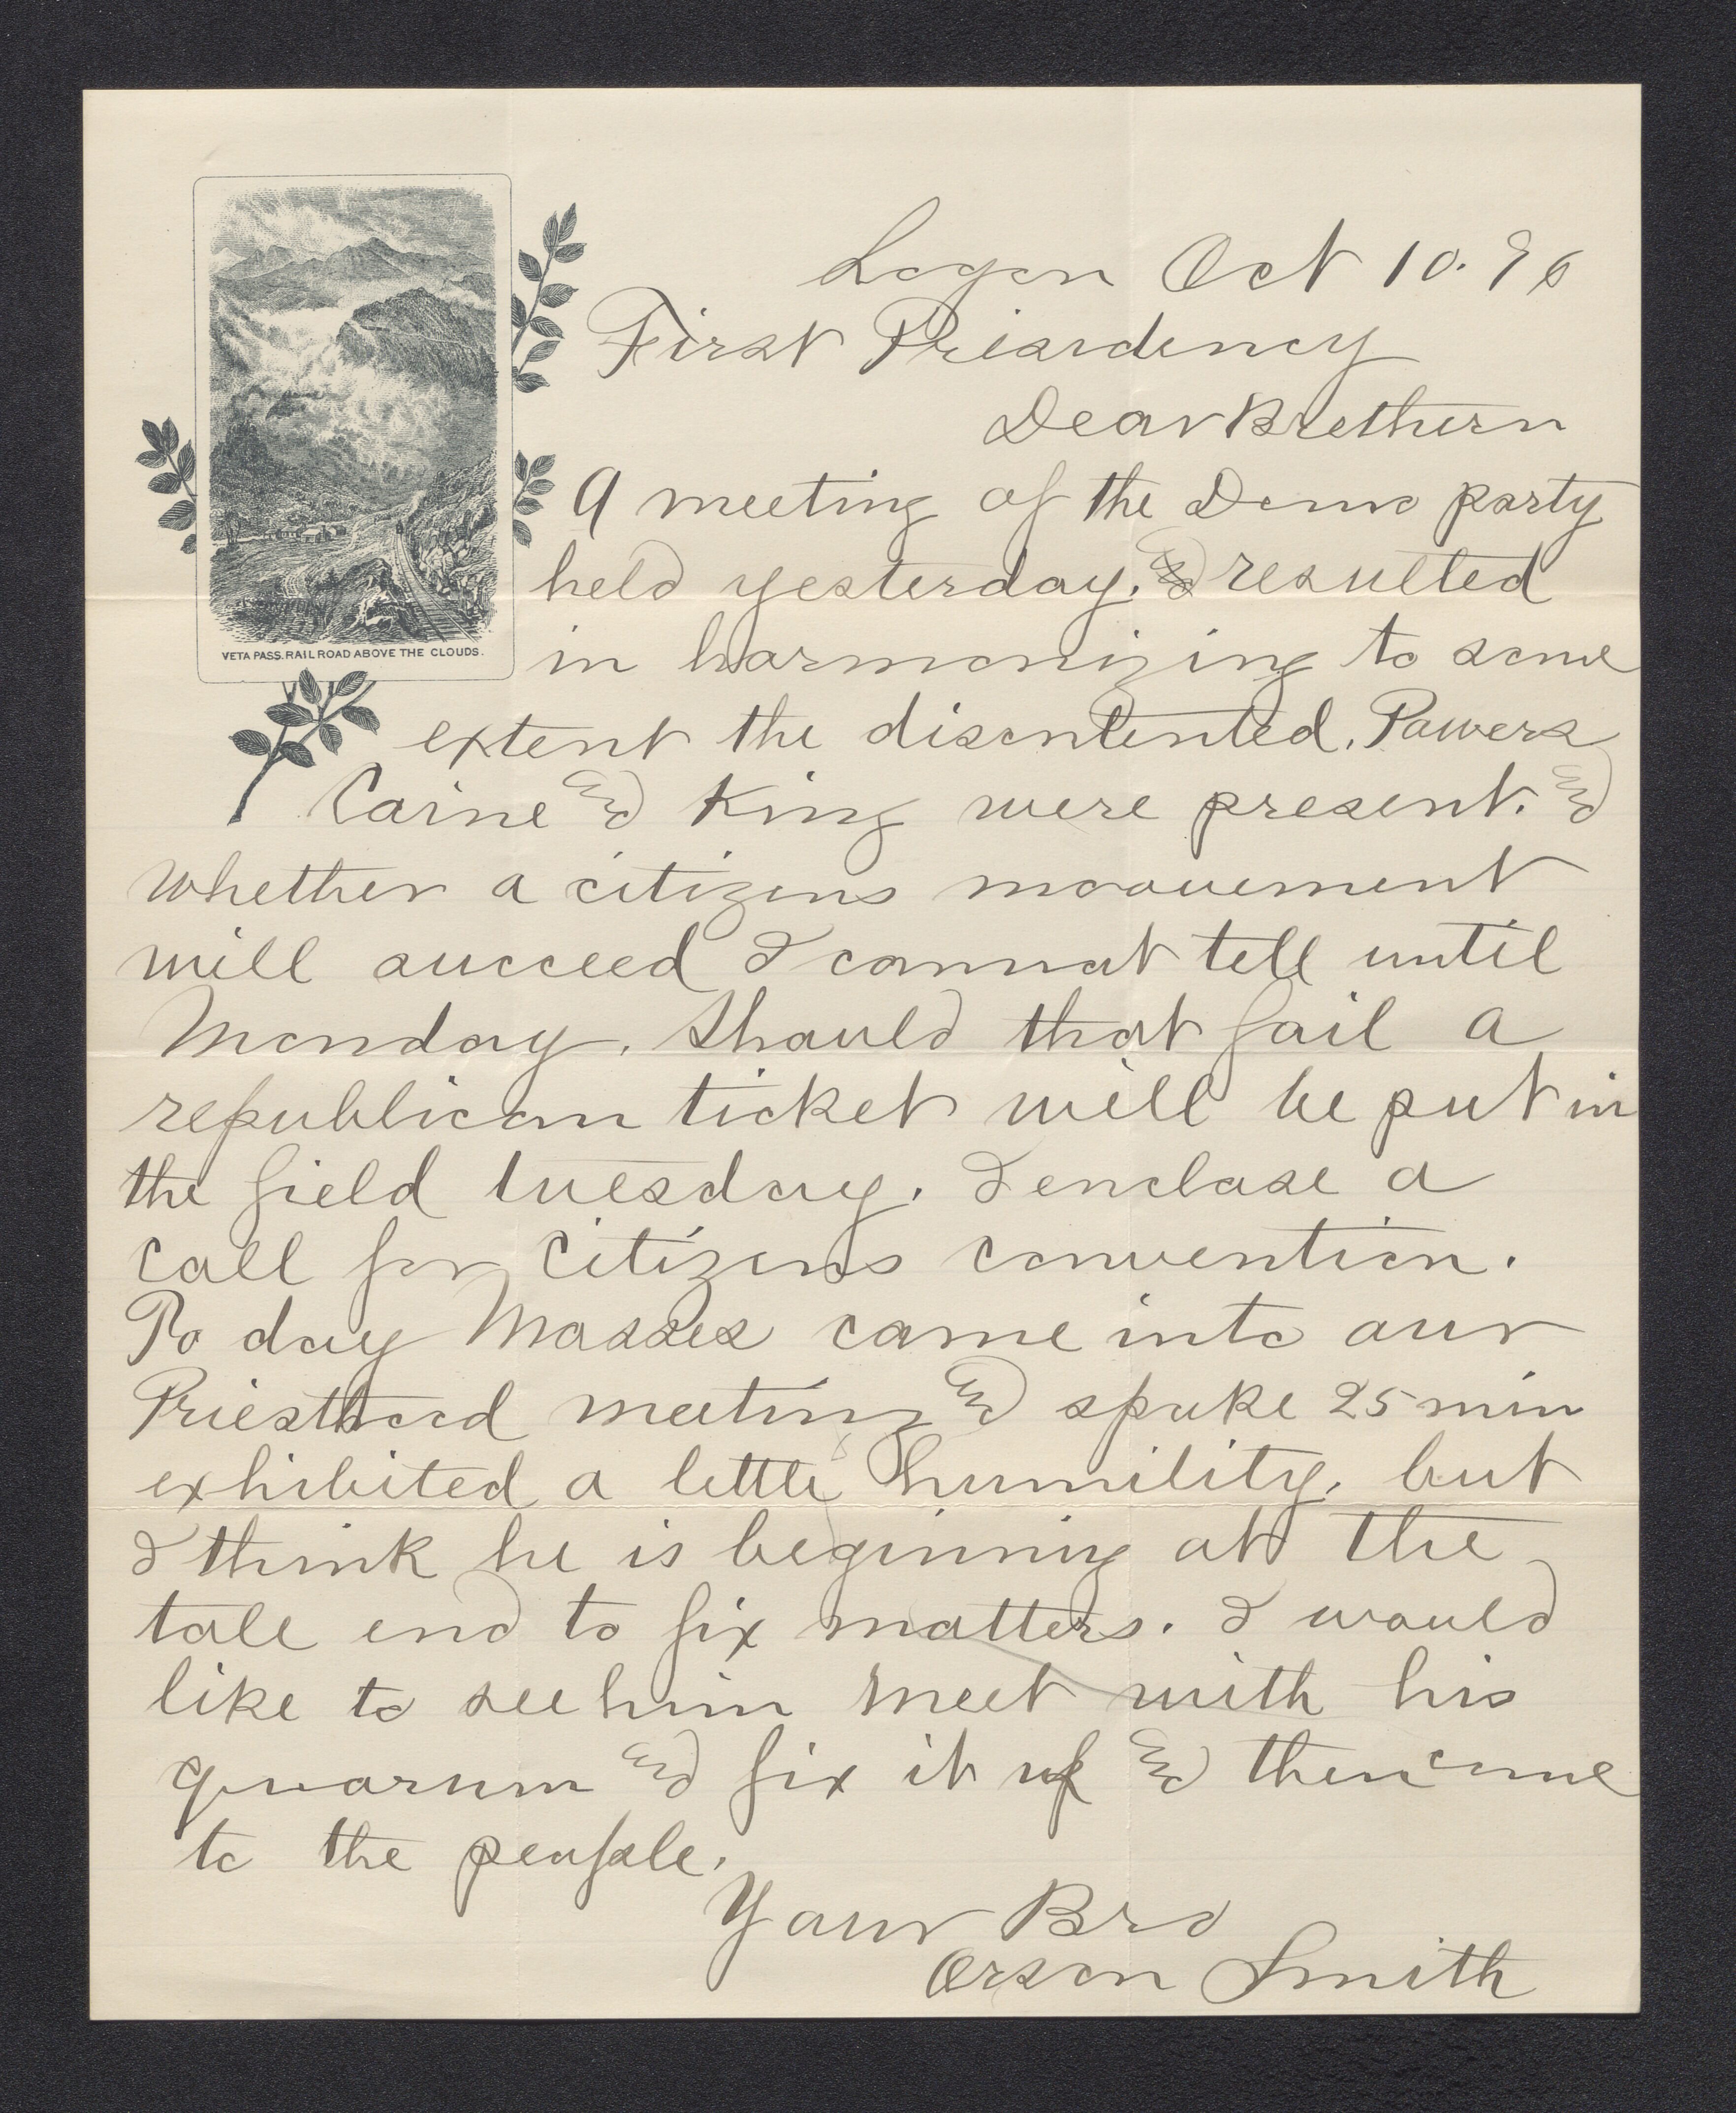 VETA PASS. RAILROAD ABOVE THE CLOUDS.
Logan Oct 10. 96
First Priesidency
Dear Brethern
A meeting of the Demo party
held yesterday. resulted
in harmonizing to some
extent the discntented. Powers
Caine and King were present. and
whether a citizens moovement
will succeed I cannot tell until
Monday. Should that fail a
republican ticket will be put in
the field tuesday. I enclose a
Call for Citizens convention.
To day Mosses came into our
Priesthood meeting and spoke 25 min
exhibited a little humility, but
I think he is beginning at the
tale end to fix matters. I would
like to see him meet with his
quorum and fix it up and then come
to the people.
Your Bro
Orson Smith